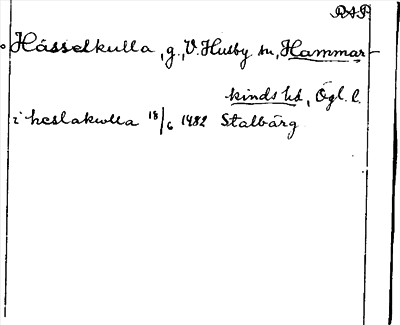 RAP
Hässelkulla, g., V. Husby sn, Hammar-
kinds hd, Ögl. l.
i heslakulla 18/6 1482 Stalbärg